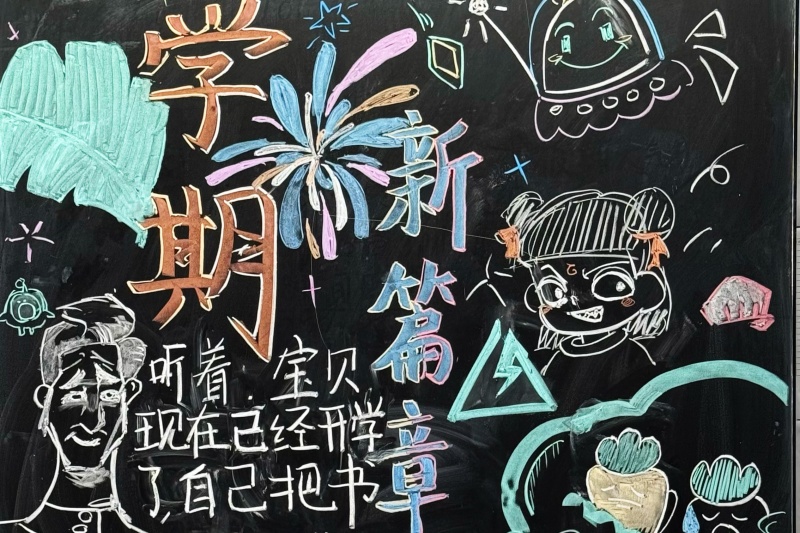 学期
新篇章
听着.宝贝
现在已经开学
了,自己把书